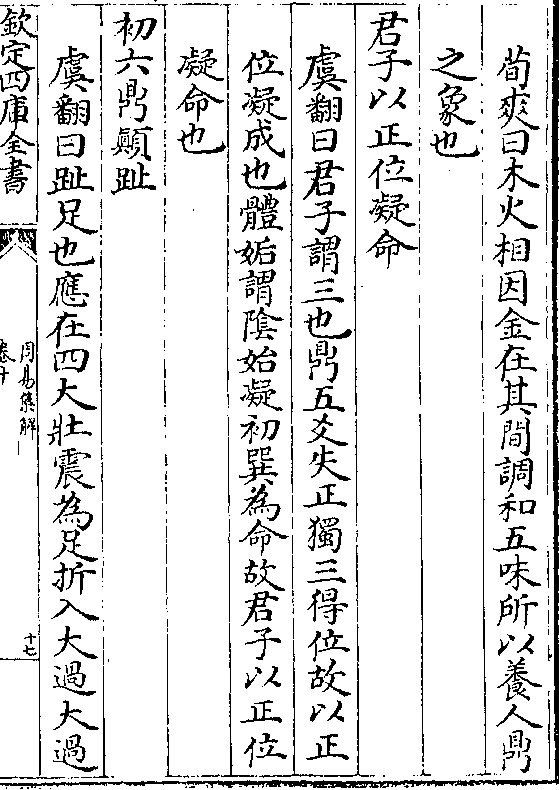 荀爽曰木火相因金在其間調和五味所以養人鼎
之象也
君子以正位凝命
虞翻曰君子謂三也鼎五爻失正獨三得位故以正
位凝成也體姤謂陰始凝初巽為命故君子以正位
凝命也
初六鼎顚趾
虞翻曰趾足也應在四大壯震為足折入大過大過
欽定四庫全書
周易集解
卷十
十七